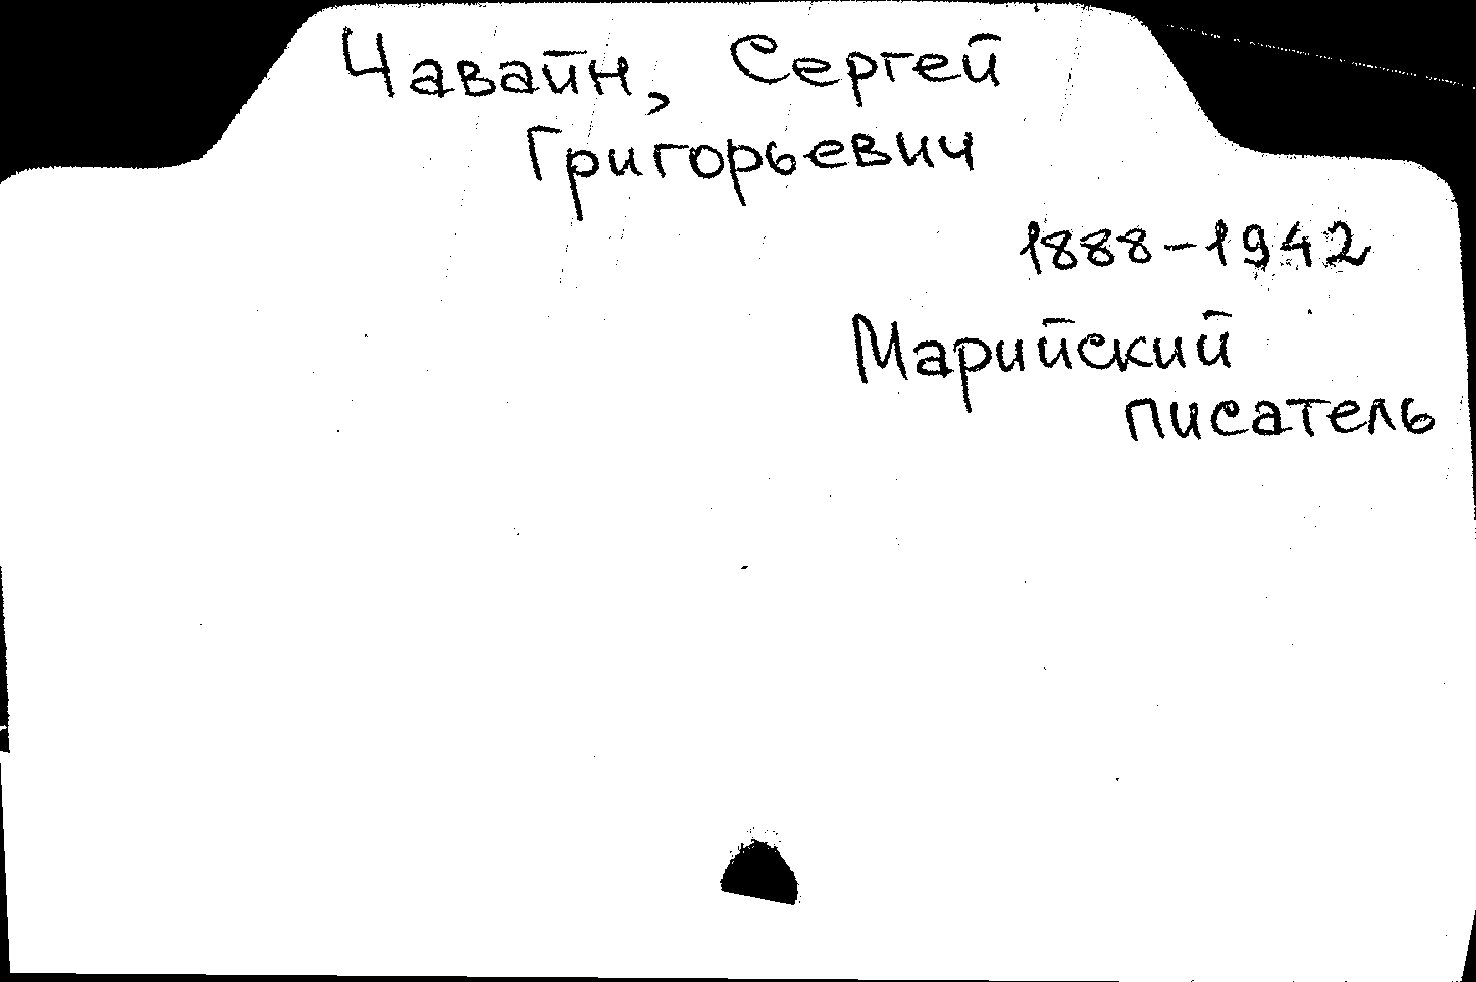 Чавайн, Сергей
Григорьевич
1888-1942
Марийский
писатель